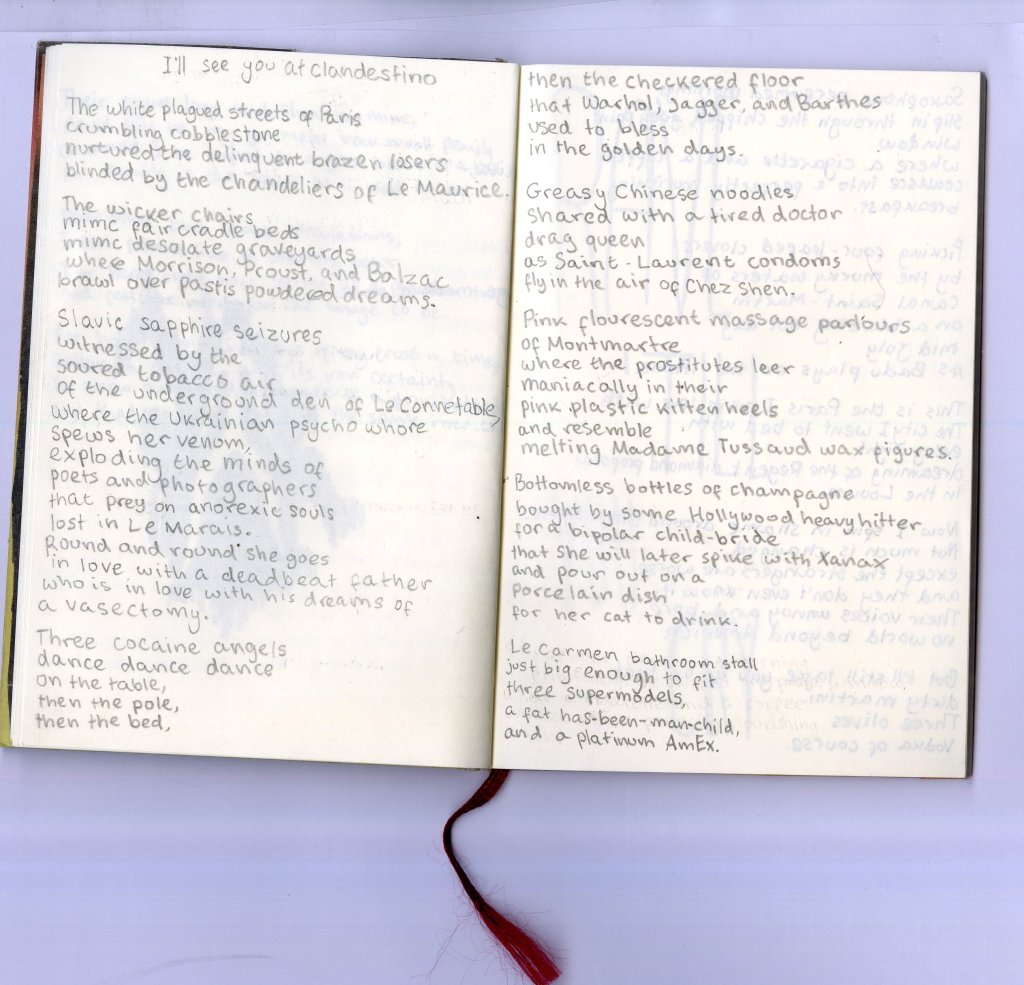 I'll see you at Clandestino
The white plagued streets of Paris
crumbling cobblestone
nurtured the delinquent brazen losers
blinded by the chandeliers of Le Maurice.
The wicker chairs
mimc fair cradle beds
mimc desolate graveyards
where Morrison, Proust, and Balzac
brawl over pastis powdered dreams.
Slavic sapphire seizures
witnessed by the
soured tobacco air
of the underground den of Le Connetable,
where the Ukrainian psycho whore
spews her venom,
exploding the minds of
poets and photographers
that prey on anorexic souls
lost in Le Marais.
Round and round she goes
in love with a deadbeat father
who is in love with his dreams of
a vasectomy.
Three cocaine angels
dance dance dance
on the table,
then the pole,
then the bed,
then the checkered floor
that Warhol, Jagger, and Barthes
used to bless
in the golden days.
Greasy Chinese noodles
shared with a tired doctor
drag queen
as Saint-Laurent condoms
fly in the air of Chez Shen.
Pink flourescent massage parlours
of Montmartre
where the prostitutes leer
maniacally in their
pink plastic kitten heels
and resemble
melting Madame Tussaud wax figures.
Bottomless bottles of champagne
bought by some Hollywood heavy hitter
for a bipolar child-bride
that she will later spike with Xanax
and pour out on a
porcelain dish
for her cat to drink.
Le Carmen bathroom stall
just big enough to fit
three supermodels,
a fat has-been-man-child,
and a platinum AmEx.